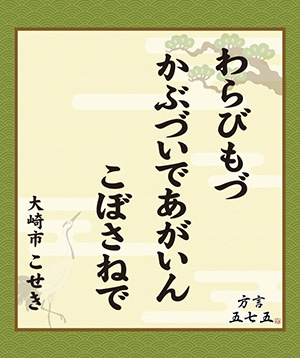 わらびもづ
かぶづいであがいん
こぼさねで
大崎市 こせき
方言
五七五